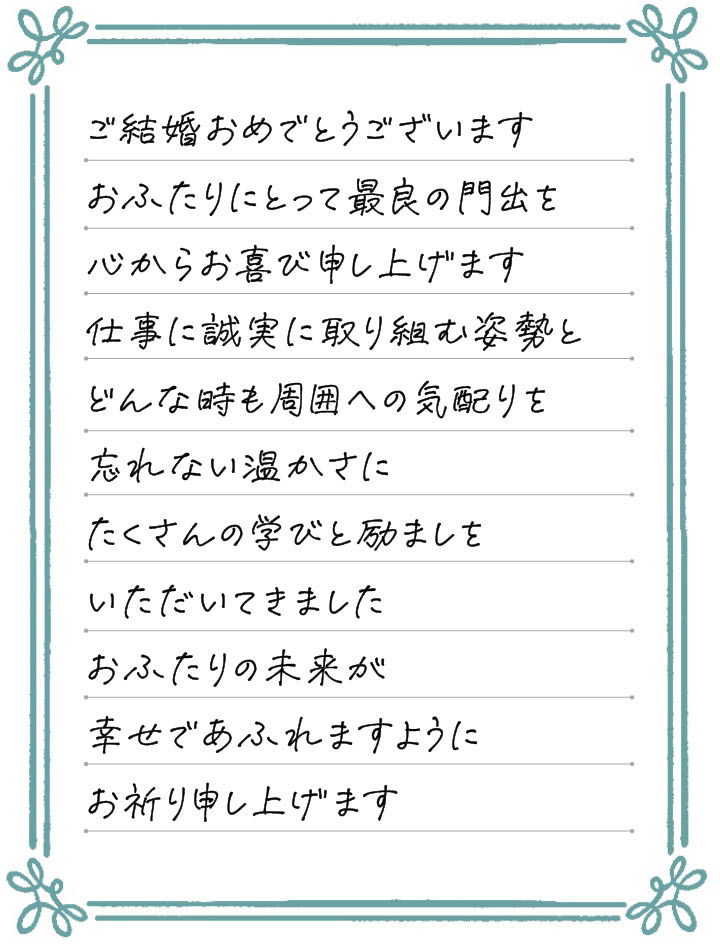 ご結婚おめでとうございます
おふたりにとって最良の門出を
心からお喜び申し上げます
仕事に誠実に取り組む姿勢と
どんな時も周囲への気配りを
忘れない温かさに
たくさんの学びと励ましを
いただいてきました
おふたりの未来が
幸せであふれますように
お祈り申し上げます